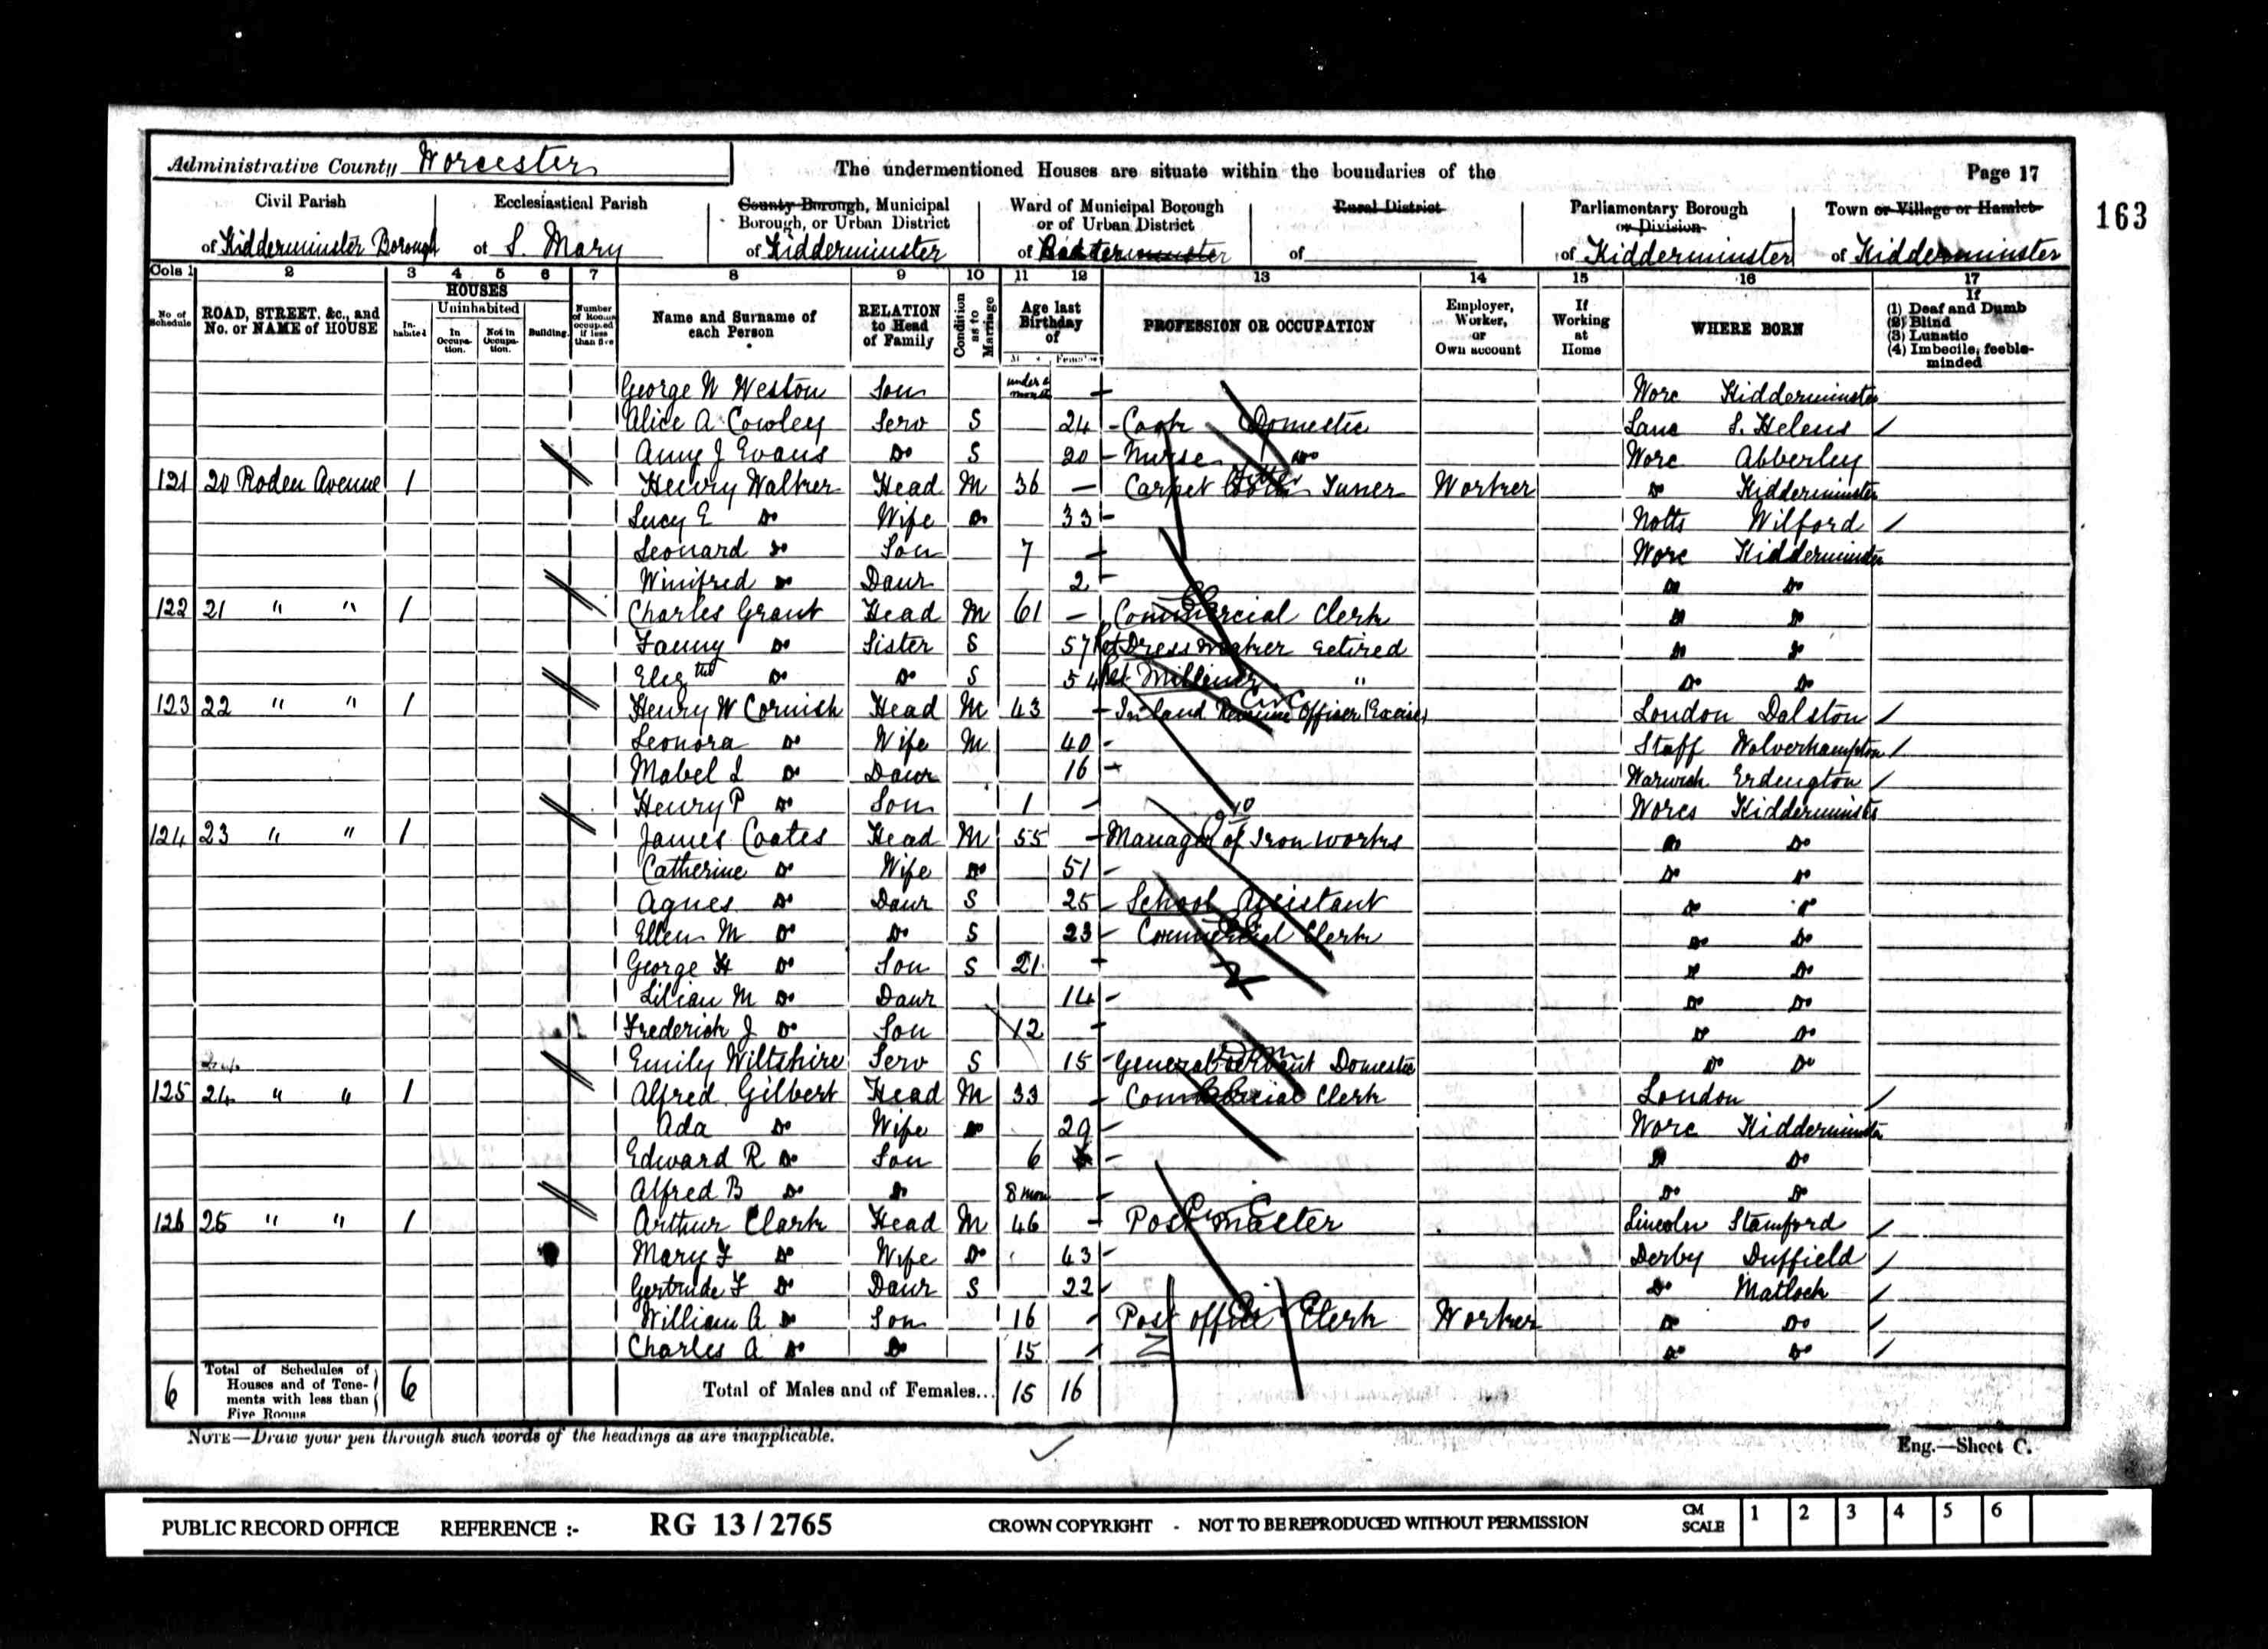 Administrative County Worcester The undermentioned Houses are situate within the boundaries of the Page 17
163
Civil Parish of Kidderminster Borough
Ecclesiastical Parish of S. Mary
County Borough, Municipal Borough, or Urban District of Kidderminster
Ward of Municipal Borough or of Urban District of
Rural District of
Parliamentary Borough or Division of Kidderminster
Town or Village or Hamlet of Kidderminster
Cols 1 2 3 4 5 6 7 8 9 10 11 12 13 14 15 16 17
No. of Schedule
ROAD, STREET, &c., and No. or NAME of HOUSE
HOUSES
Inhabited
Uninhabited
In Occupation.
Not in Occupation.
Building.
Number of Rooms occupied if less than five
Name and Surname of each Person
RELATION to Head of Family
Condition as to Marriage
Age last Birthday of
PROFESSION OR OCCUPATION
Employer, Worker, or Own account
If Working at Home
WHERE BORN
If
(1) Deaf and Dumb
(2) Blind
(3) Lunatic
(4) Imbecile, feeble-minded
George W Weston Son under 1 month Worc Kidderminster
Alice A Cowley Serv S 24 Cook Domestic Lanc S. Helens
Anny J Evans Do S 20 Nurse Do Worc Abberley
121 20 Roden Avenue 1 Henry Walker Head M 36 Carpet Tuner Worker Do Kidderminster
Lucy E Do Wife Do 33 Notts Wilford
Leonard Do Son 7 Worc Kidderminster
Winifred Do Daur 2 Do Do
122 21 " " 1 Charles Grant Head M 61 Commercial Clerk Do Do
Fanny Do Sister S 57 Ret Dress maker retired Do Do
Eliz th Do Do S 54 Ret Milliner " Do Do
123 22 " " 1 Henry W Cornish Head M 43 Inland Revenue Officer (Excise) London Dalston
Leonora Do Wife M 40 Staff Wolverhampton
Mabel I Do Daur 16 Warwick Erdington
Henry P Do Son 1 Worcs Kidderminster
124 23 " " 1 James Coates Head M 55 Manager of Iron works Do Do
Catherine Do Wife Do 51 Do Do
Agnes Do Daur S 25 School Assistant Do Do
Ellen M Do Do S 23 Commercial Clerk Do Do
George H Do Son S 21 Do Do
Lilian M Do Daur 14 Do Do
Frederick J Do Son 12 Do Do
Emily Wiltshire Serv S 15 General Servant Domestic Do Do
125 24 " " 1 Alfred Gilbert Head M 33 Commercial Clerk London
Ada Do Wife Do 29 Worc Kidderminster
Edward R Do Son 6 Do Do
Alfred B Do Do 8 mon Do Do
126 25 " " 1 Arthur Clark Head M 46 Postmaster Lincoln Stamford
Mary F Do Wife Do 43 Derby Duffield
Gertrude F Do Daur S 22 Do Matlock
William A Do Son 16 Post office Clerk Worker Do Do
Charles A Do Do 15 Do Do
6 Total of Schedules of Houses and of Tenements with less than Five Rooms 6 Total of Males and of Females... 15 16
NOTE—Draw your pen through such words of the headings as are inapplicable.
Eng.—Sheet C.
PUBLIC RECORD OFFICE REFERENCE :- RG 13/2765 CROWN COPYRIGHT - NOT TO BE REPRODUCED WITHOUT PERMISSION CM SCALE 1 2 3 4 5 6